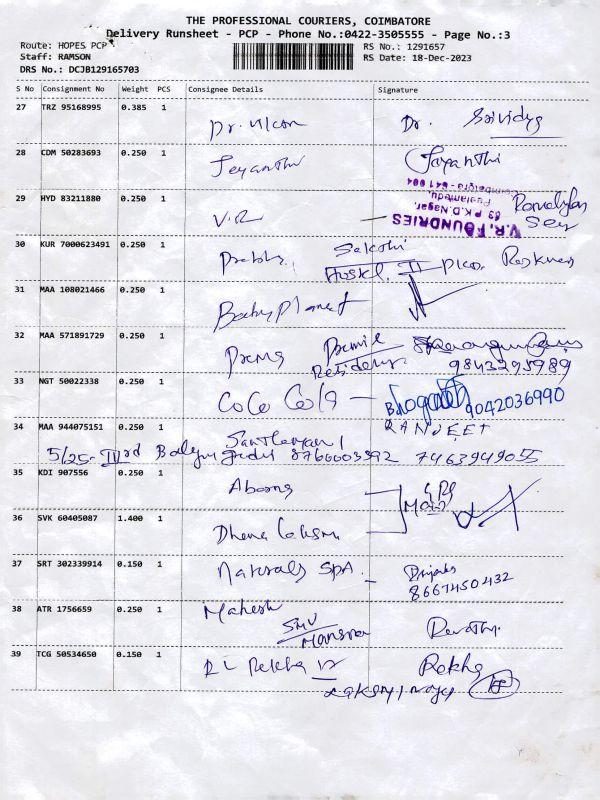 THE PROFESSIONAL COURIERS, COIMBATORE
Delivery Runsheet - PCP - Phone No.:0422-3505555 - Page No.:3
Route: HOPES PCP
RS No.: 1291657
Staff: RAMSON
RS Date: 18-Dec-2023
DRS No.: DCJB129165703
S No Consignment No Weight PCS Consignee Details Signature
27 TRZ 95168995 0.385 1
Dr. Dr. Srividya
28 CDM 50283693 0.250 1
Jeyanthi Jayanthi
29 HYD 83211880 0.250 1
V.R
V.R. FOUNDRIES
63 P.K.D.Nagar,
Peelamedu,
Coimbatore - 641 004
30 KUR 7000623491 0.250 1
Prabhu Sakthi
Hostel II
31 MAA 108021466 0.250 1
Baby Planet
32 MAA 571891729 0.250 1
Prema
Residency
9843295989
33 NGT 50022338 0.250 1
CoCo Cola 9042036990
34 MAA 944075151 0.250 1
RANJEET
5/25-IIIrd 8760003392 7463949055
35 KDI 907556 0.250 1
36 SVK 60405087 1.400 1
37 SRT 302339914 0.150 1
Naturals SPA
8667450432
38 ATR 1756659 0.250 1
Mahesh
SMV
Mansion
Revathi
39 TCG 50534650 0.150 1
Rekha Rekha